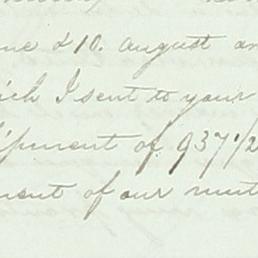 ne & 10. August an
ich I sent to your
ipment of 937 1/2
ment of our mut